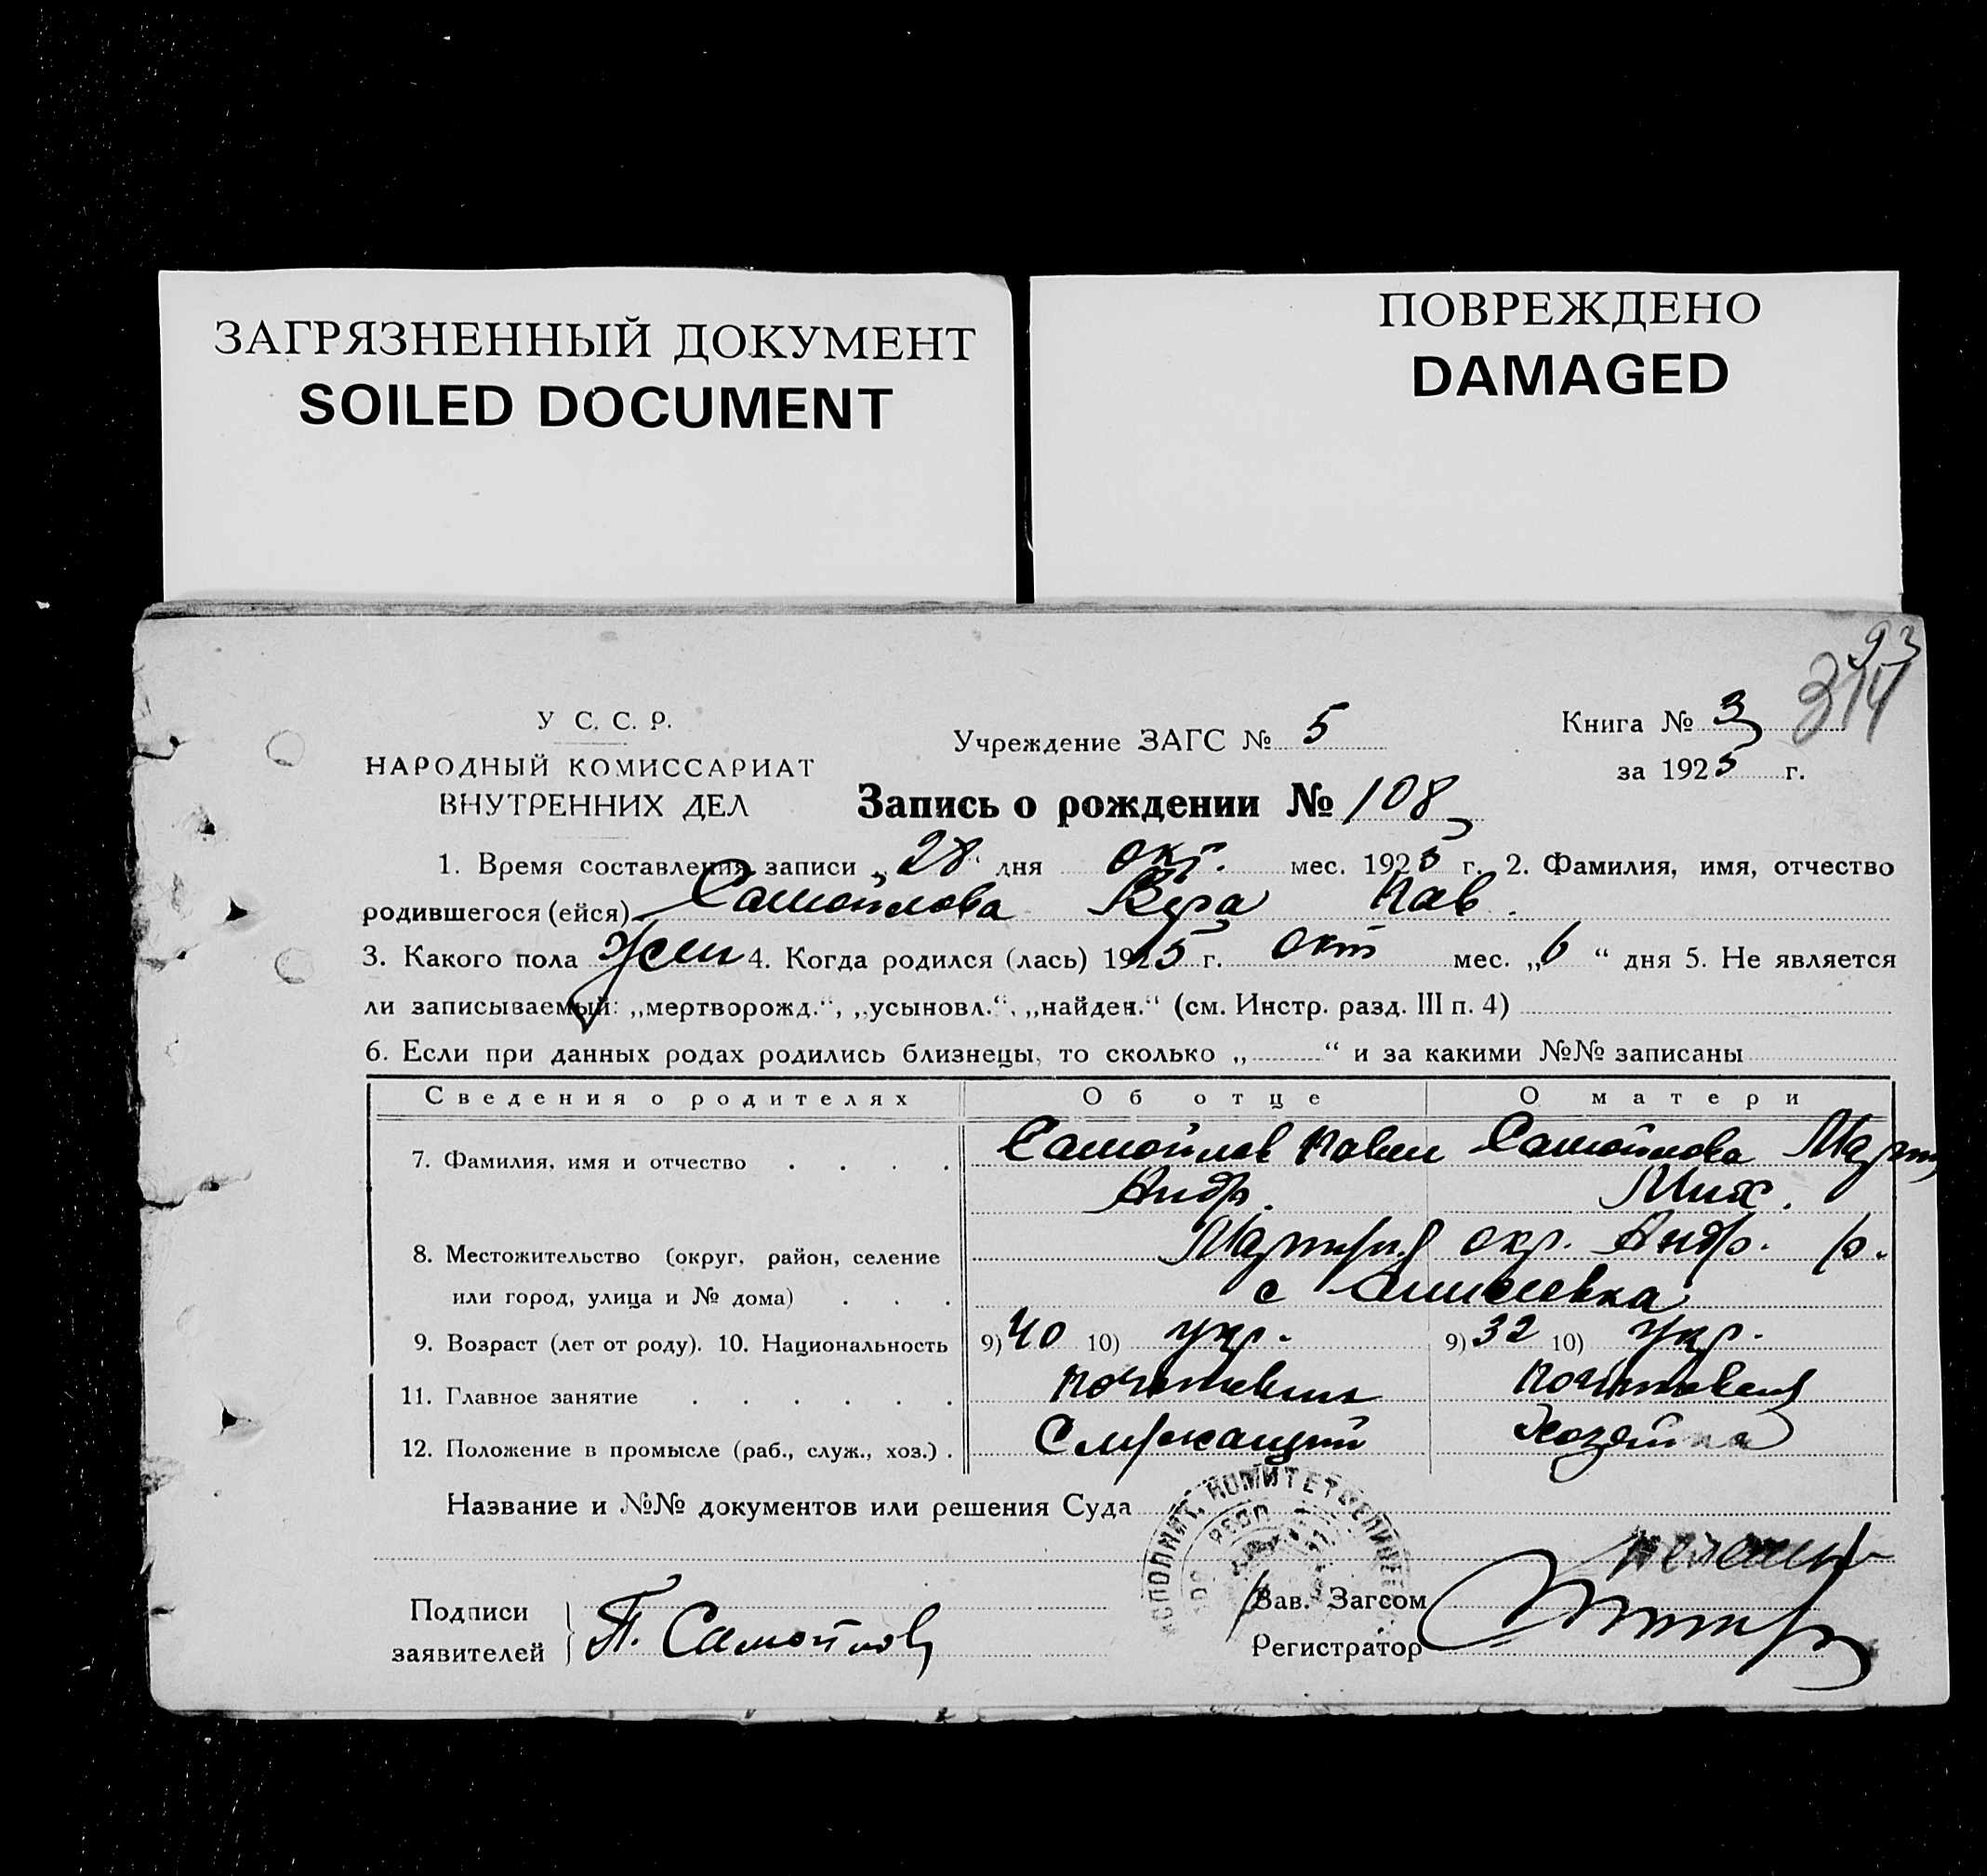 ЗАГРЯЗНЕННЫЙ ДОКУМЕНТ
SOILED DOCUMENT
ПОВРЕЖДЕНО
DAMAGED
93
314
У С. С. Р.
НАРОДНЫЙ КОМИССАРИАТ
ВНУТРЕННИХ ДЕЛ
Учреждение ЗАГС № 5
Книга № 3
за 1925 г.
Запись о рождении № 108
1. Время составления записи „28“ дня окт. мес. 1925 г. 2. Фамилия, имя, отчество
родившегося (ейся) Самойлова Вера Пав.
3. Какого пола жен 4. Когда родился (лась) 1925 г. окт мес. „6“ дня 5. Не является
ли записываемый: „мертворожд.“, „усыновл.“, „найден.“ (см. Инстр. разд. III п. 4)
6. Если при данных родах родились близнецы, то сколько „ “ и за какими №№ записаны
Сведения о родителях Об отце О матери
7. Фамилия, имя и отчество . . . . Самойлов Павел Самойлова
Андр. Мих.
8. Местожительство (округ, район, селение окр. Андр. р.
или город, улица и № дома) . . . с
9. Возраст (лет от роду). 10. Национальность 9) 40 10) укр. 9) 32 10) укр.
11. Главное занятие . . . . . .
12. Положение в промысле (раб., служ., хоз.) . Служащий Хозяйка
Название и №№ документов или решения Суда
Подписи
заявителей П. Самойлов
Зав. Загсом
Регистратор